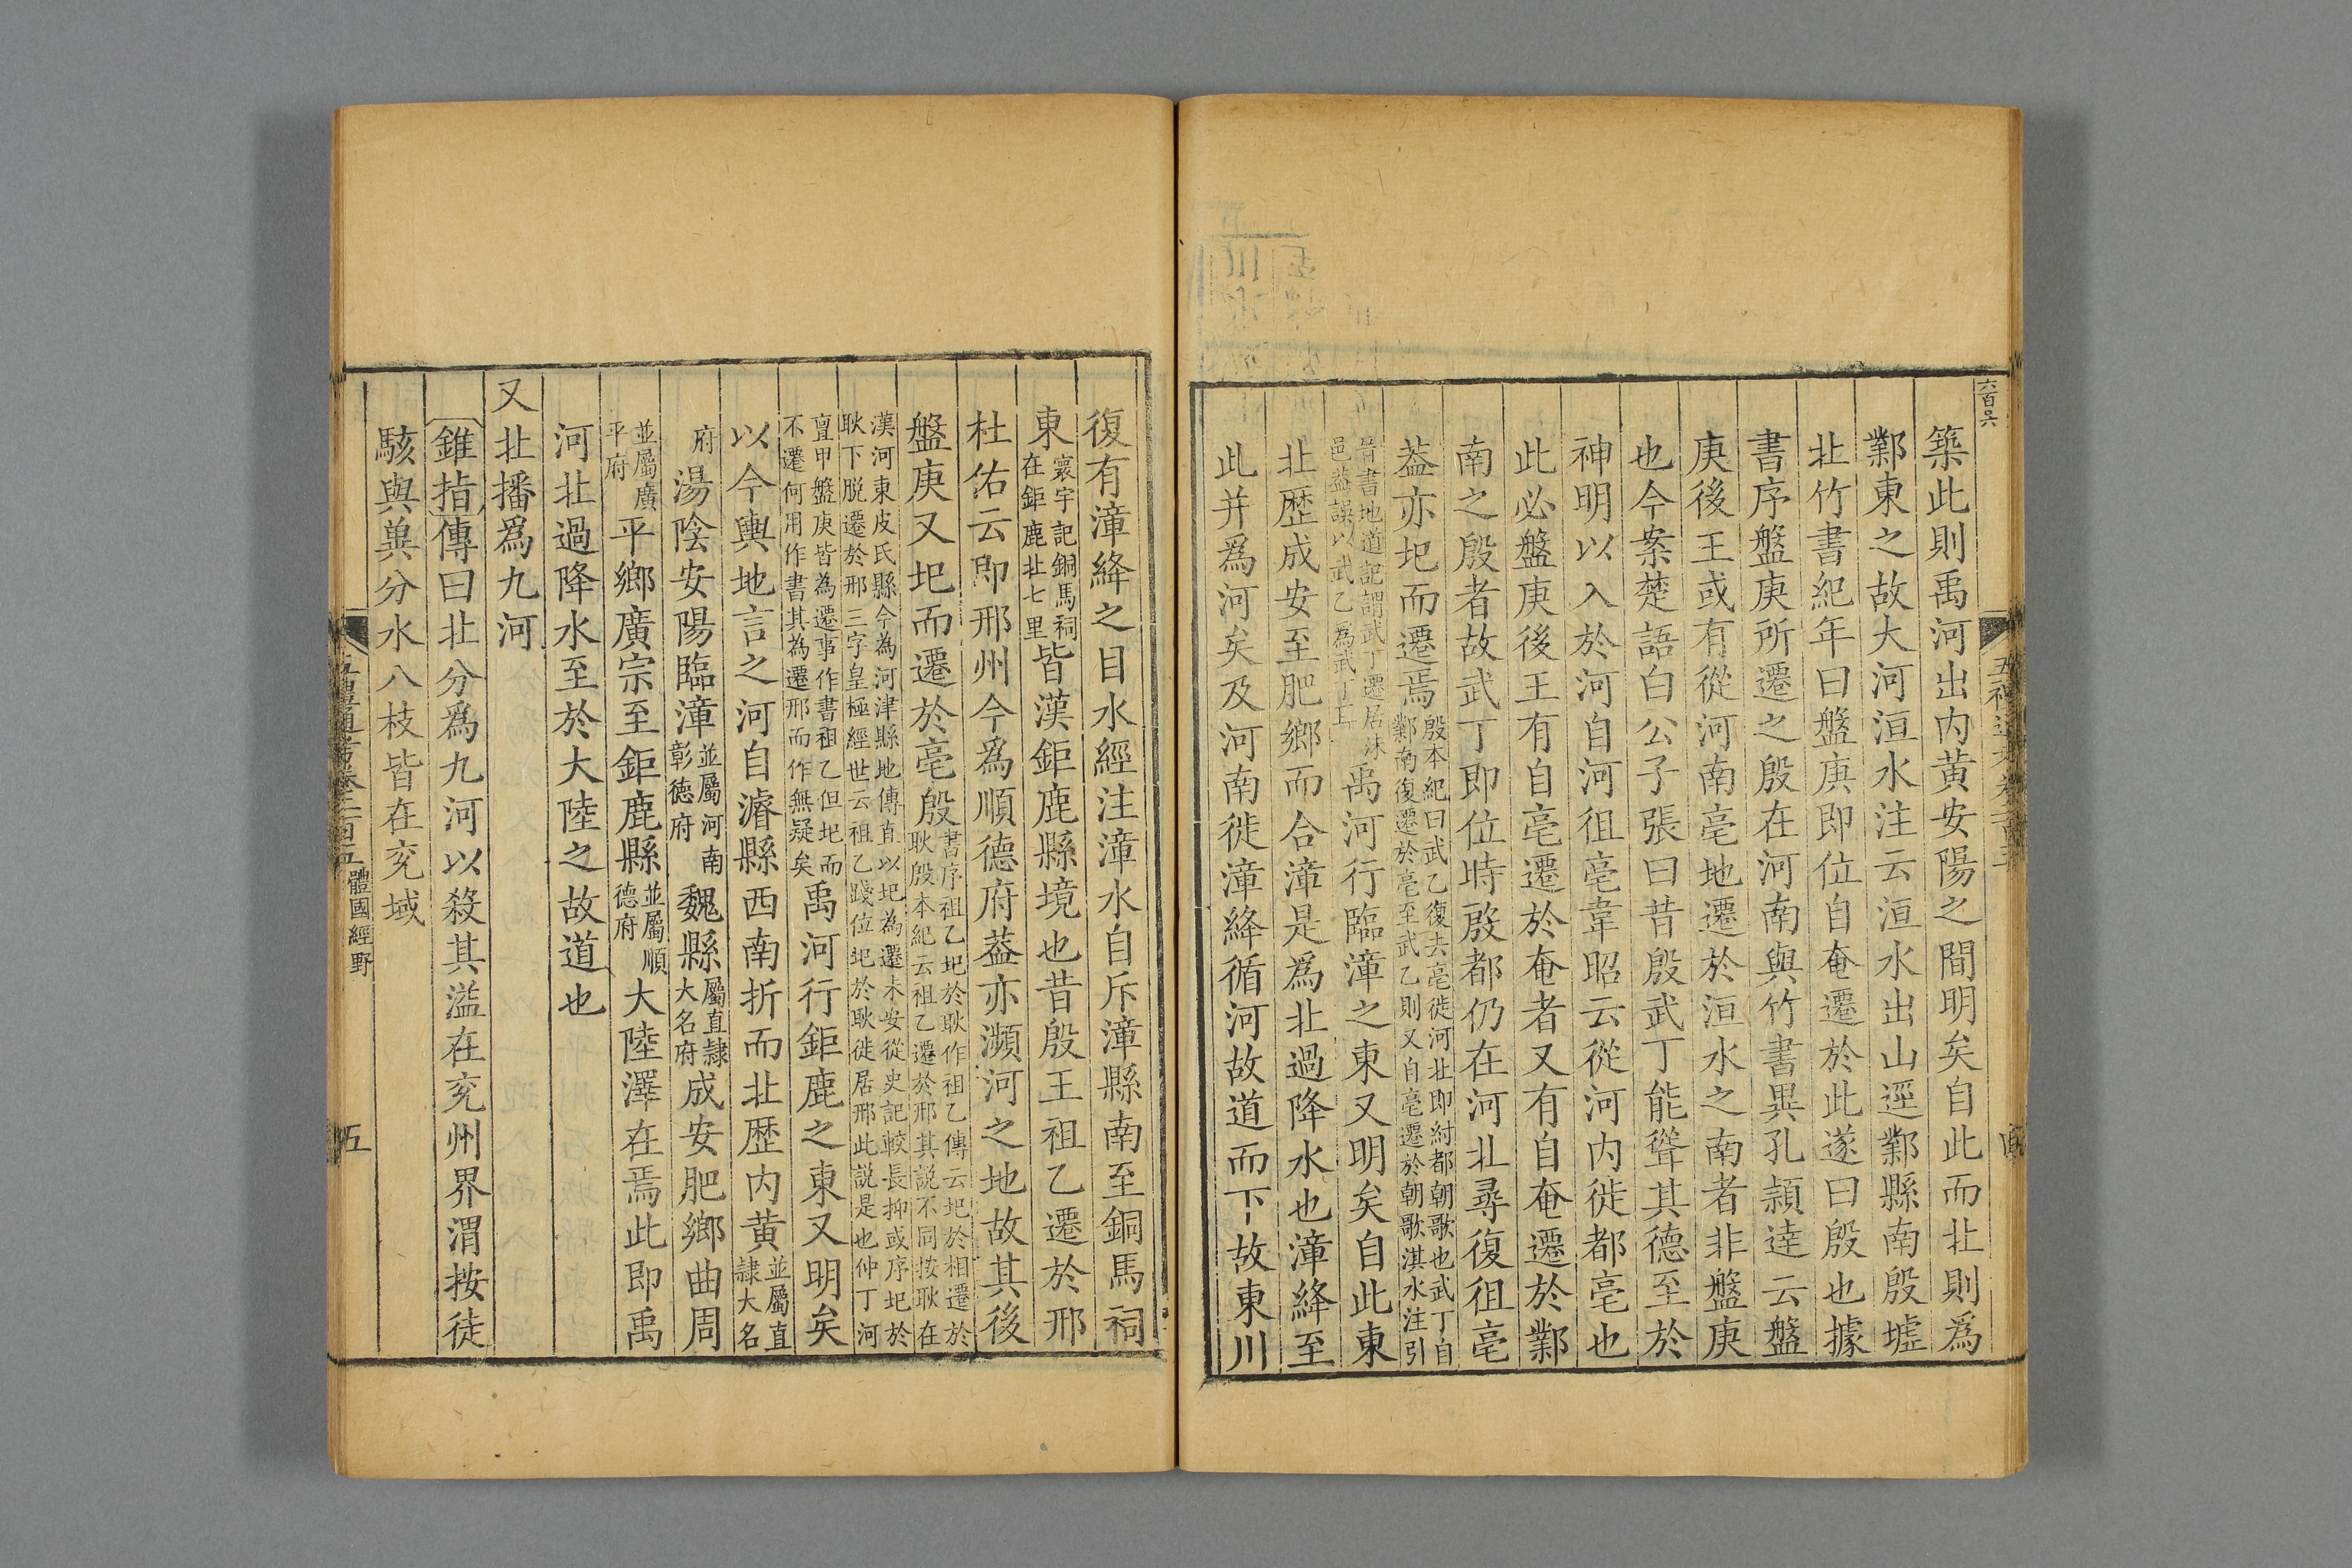 六百四六
築此則禹河出内黄安陽之間明矣自此而北則爲
鄴東之故大河洹水注云洹水出山逕鄴縣南殷墟
北竹書紀年曰盤庚即位自奄遷於此遂曰殷也據
書序盤庚所遷之殷在河南與竹書異孔頴逹云盤
庚後王或有從河南亳地遷於洹水之南者非盤庚
也今案楚語白公子張曰昔殷武丁能聳其德至於
神明以入於河自河徂亳韋昭云從河内徙都亳也
此必盤庚後王有自亳遷於奄者又有自奄遷於鄴
南之殷者故武丁即位時殷都仍在河北尋復徂亳
葢亦圯而遷焉殷本紀曰武乙復去亳徙河北即紂都朝歌也武丁自
鄴南復遷於亳至武乙則又自亳遷於朝歌淇水注引
晉書地道記謂武丁遷居沬
邑葢誤以武乙爲武丁耳禹河行臨漳之東又明矣自此東
北歴成安至肥鄉而合漳是爲北過降水也漳絳至
此并爲河矣及河南徙漳絳循河故道而下故東川
復有漳絳之目水經注漳水自斥漳縣南至銅馬祠
東寰宇記銅馬祠
在鉅鹿北七里皆漢鉅鹿縣境也昔殷王祖乙遷於邢
杜佑云即邢州今爲順德府葢亦瀕河之地故其後
盤庚又圯而遷於亳殷書序祖乙圯於耿作祖乙傳云圯於相遷於
耿殷本紀云祖乙遷於邢其説不同按耿在
漢河東皮氏縣今為河津縣地傳直以圯為遷未安從史記較長抑或序圯於
耿下脱遷於邢三字皇極經世云祖乙踐位圯於耿徙居邢此説是也仲丁河
亶甲盤庚皆為遷事作書祖乙但圯而
不遷何用作書其為遷邢而作無疑矣禹河行鉅鹿之東又明矣
以今輿地言之河自濬縣西南折而北歴内黄並屬直
隸大名
府湯陰安陽臨漳並屬河南
彰德府魏縣屬直隸
大名府成安肥鄉曲周
並屬廣
平府平鄉廣宗至鉅鹿縣並屬順
德府大陸澤在焉此即禹
河北過降水至於大陸之故道也
又北播爲九河
錐指傳曰北分爲九河以殺其溢在兖州界渭按徒
駭與冀分水八枝皆在兖域
體國經野
五